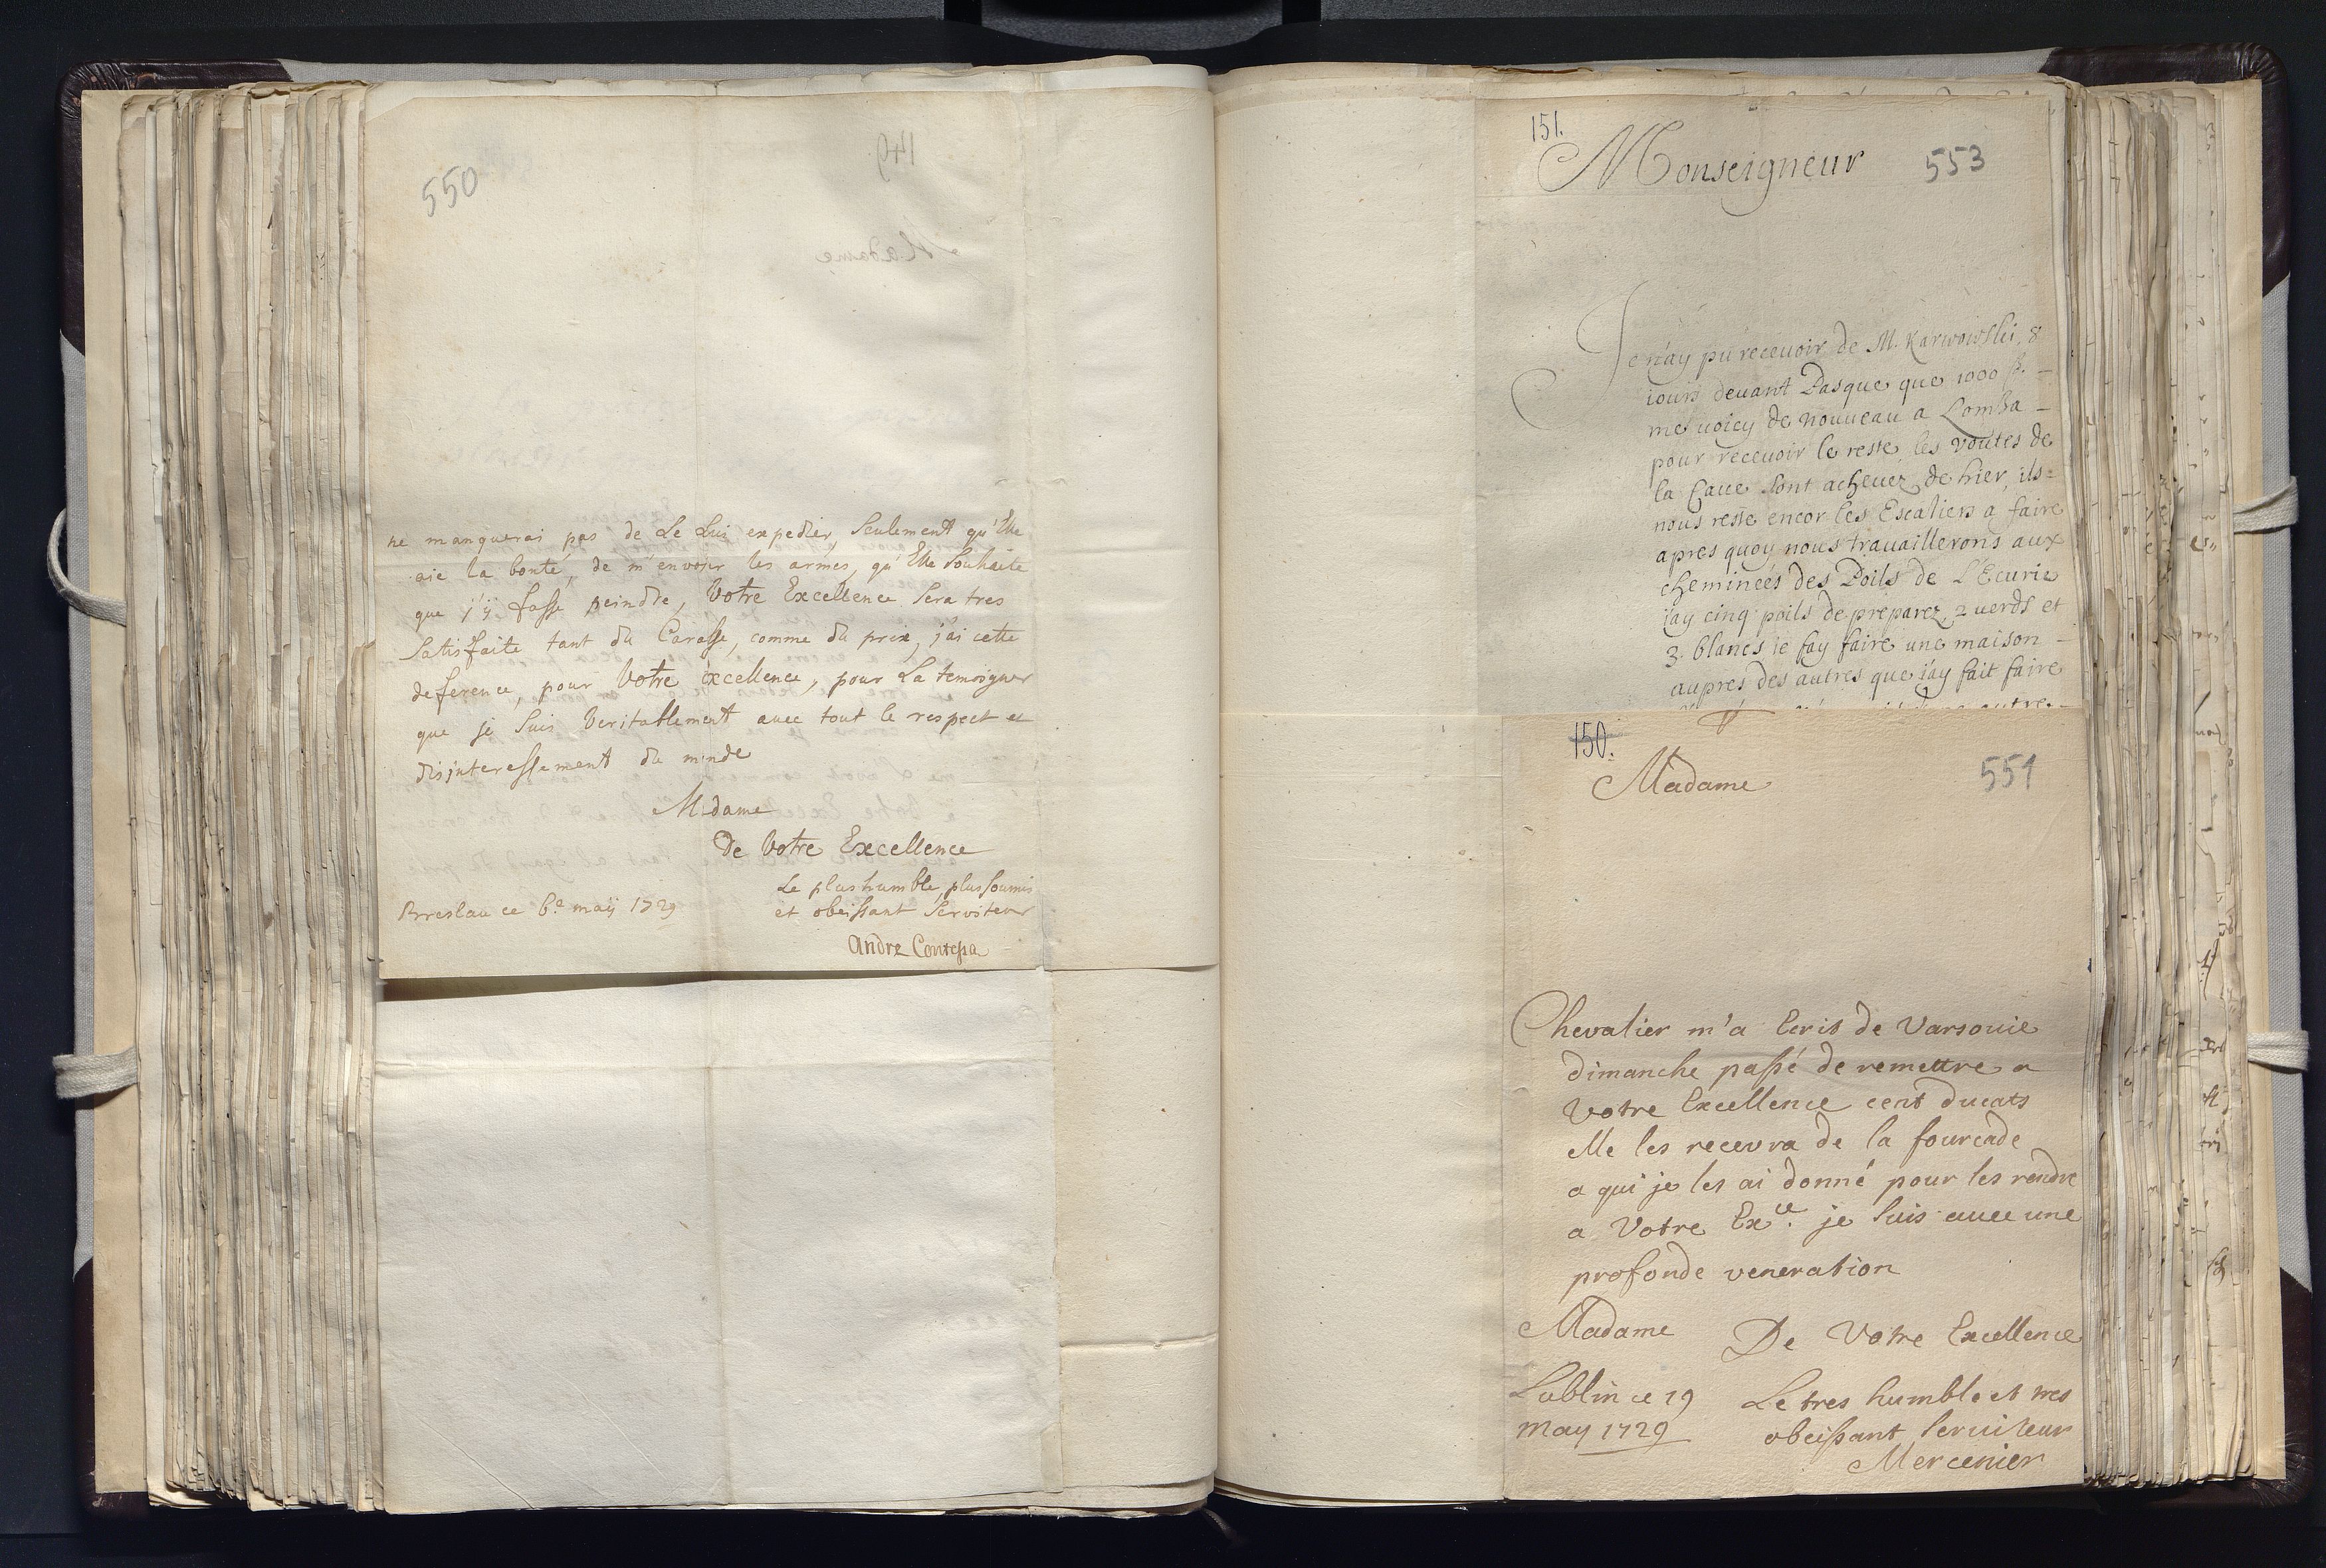 550
ne manquerai pas de Le Lui expedier, Seulement qu'Elle
aie la bonté, de m'envoier les armes, qu'Elle Souhaite
que j'ÿ fasse peindre, Votre Excellence Sera tres
Satisfaite tant du Carosse, comme du prix, j'ai cette
deference, pour Votre Excellence, pour La temoigner
que je Suis Veritablement avec tout le respect et
disinteressement du monde
Madame
De Votre Excellence
Le plus humble, plus soumis
et obeissant Serviteur
Breslau ce 6.e maÿ 1729
Andre Contessa
151.
Monseigneur 553
Je n'ay pû receuoir de M. Karwowski, 8
iours deuant Pasque que 1000 fl. –
me uoicy de nouueau a Lomza –
pour receuoir le reste, les Voutes de
la Caue Sont acheuez de hier, ils
nous reste encor les Escaliers a faire
apres quoy nous trauaillerons aux
cheminéés des Poils de L'Ecurie
i'ay cinq poils de preparez 2 uerds et
3. blancs ie fay faire une maison –
aupres des autres que i'ay fait faire
150.
Madame 551
Chevalier m'a Ecris de Varsovie
dimanche passé de remettre a
Votre Excellence cent ducats
elle les recevra de la fourcade
a qui je les ai donné pour les rendre
a Votre Ex.ce je Suis avec une
profonde veneration
Madame De Votre Excellence
Lublin ce 19 Le tres humble et tres
May 1729 obeissant Seruiteur
Mercenier